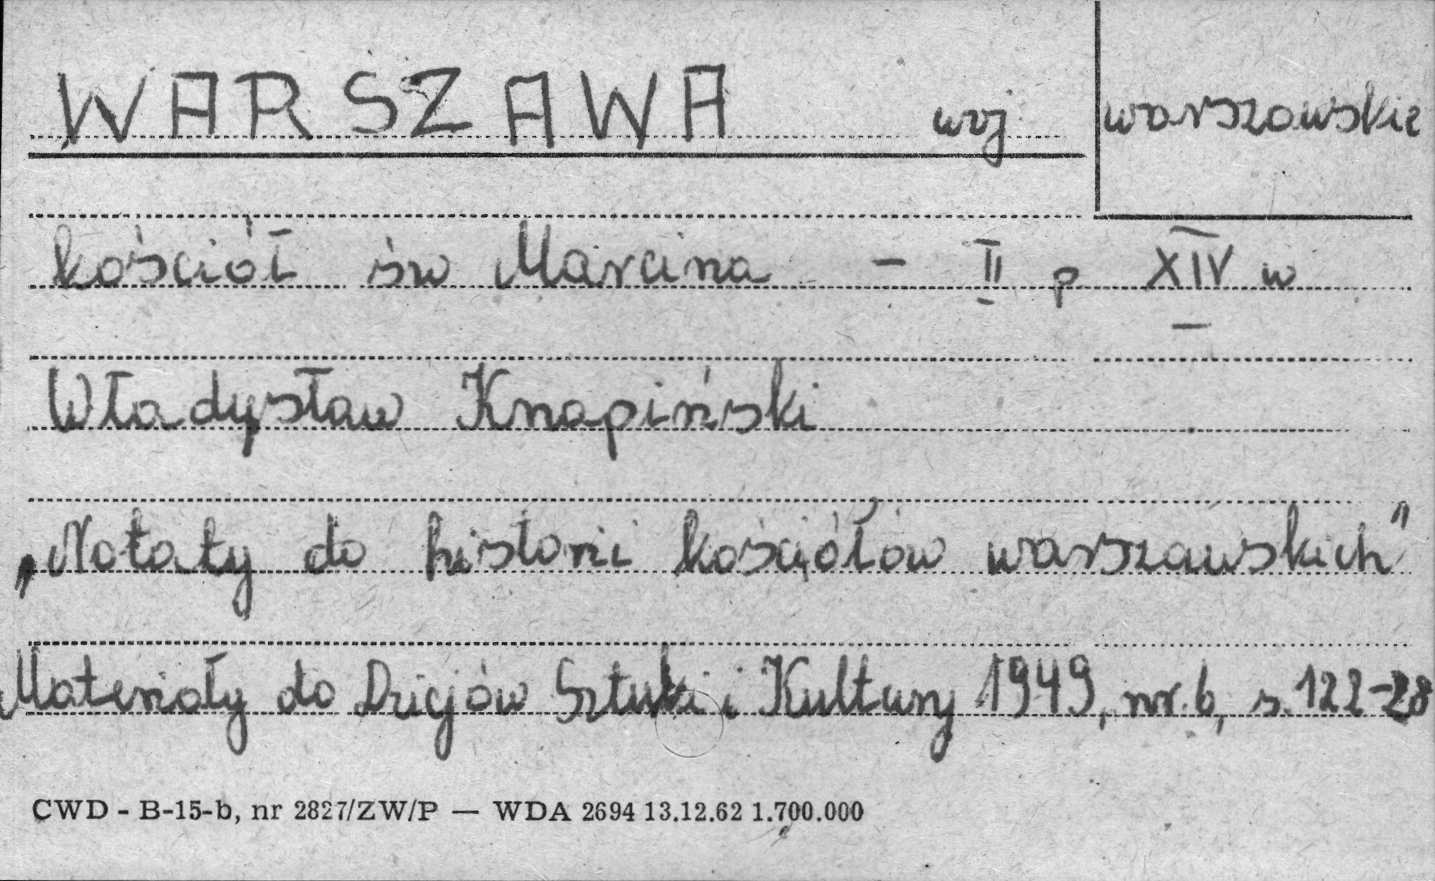 WARSZAWA woj warszawskie
kościół św Marcina - II p XIV w
Władysław Knapiński
„Notaty do historii kościółów warszawskich"
Materiały do Dziejów Sztuki i Kultury 1949, nr. 6, s. 122-28
CWD - B-15-b, nr 2827/ZW/P — WDA 2694 13.12.62 1.700.000